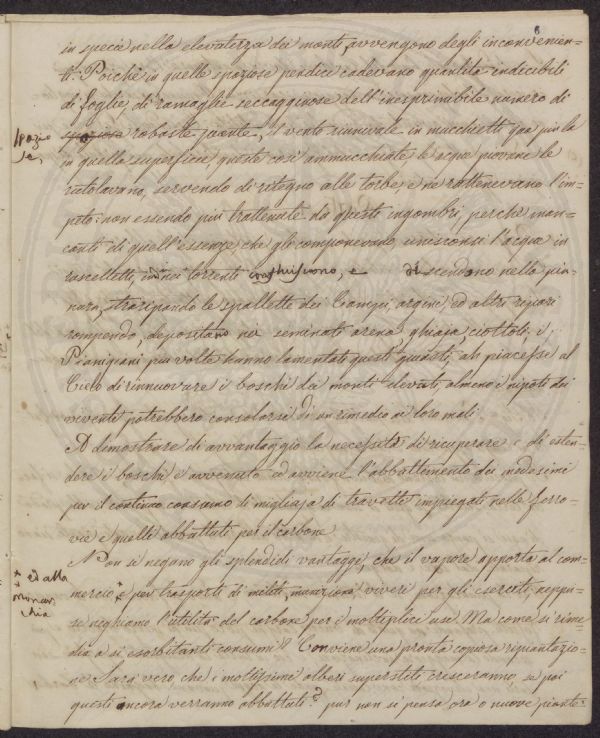 6
in specie nella elevatezza dei monti avvengono degli inconvenien=
ti. Poichè in quelle spaziose pendici cadevano quantità indicibili
di foglie, di ramaglie seccagginose dell'inesprimibile numero di
spaziose
robuste piante, il vento riunivale in mucchietti qua più là
in quella superficie, queste così ammucchiate le acque piovane le
rotolavano, servendo di ritegno alle torbe, e ne rattenevano l'im=
peto: non essendo più trattenute da questi ingombri, perchè man=
canti di quell'essenze, che gli componevano, unisconsi l'acque in
ruscelletti, indi in torrenti, e discendono nella pia=
nura, straripando le spallette dei Campi, argini ed altri ripari
rompendo, depositano nei seminati arena, ghiaja, ciottoli; i
Pianigiani più volte hanno lamentati questi guasti, ah piacesse al
Cielo di rinnuovare i boschi dei monti elevati, almeno i nipoti dei
viventi potrebbero consolarsi di un rimedio ai loro mali
A dimostrare di avvantaggio la necessità di ricuperare e di esten=
dere i boschi è avvenuto ed avviene l'abbattimento dei medesimi
per il continuo consumo di migliaja di travette impiegati nelle ferro=
vie e quelli abbattuti per il carbone
Non si negano gli splendidi vantaggi, che il vapore apporta al com=
+ ed alla monarchia
mercio + e per trasporti di militi, munizioni, viveri per gli eserciti, neppu=
re neghiamo l'utilità del carbone per i moltiplici usi. Ma come si rime=
dia a sì esorbitanti consumi? Conviene una pronta copiosa ripiantazio=
ne. Sarà vero, che i moltissimi alberi superstiti cresceranno, se poi
questi ancora verranno abbattuti? pur non si pensa ora a nuove piante: